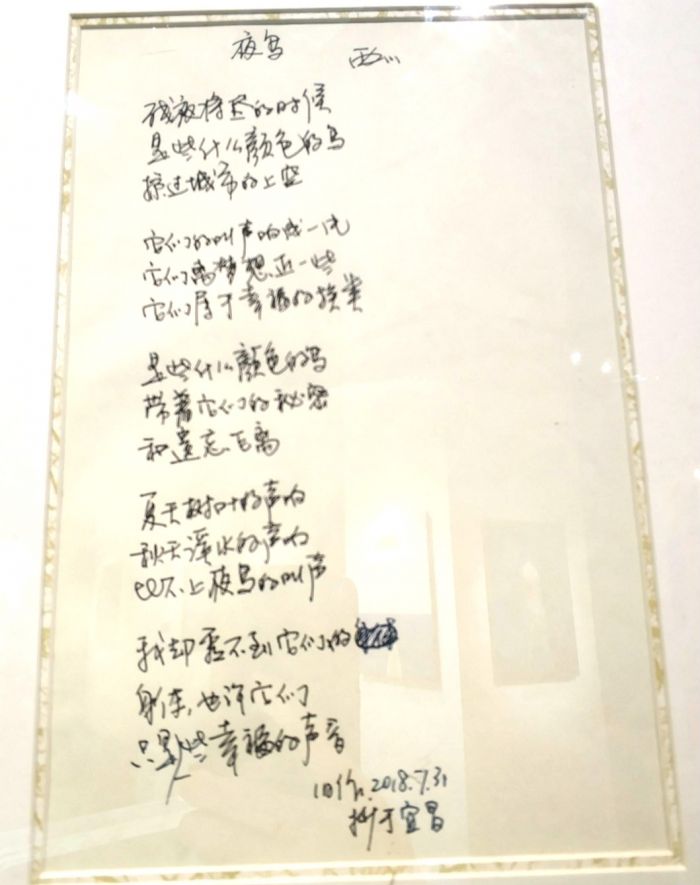 夜鸟 西川
残夜将尽的时候
是些什么颜色的鸟
掠过城市的上空
它们的叫声响成一片
它们离梦想近一些
它们属于幸福的族类
是些什么颜色的鸟
带着它们的秘密
和遗忘飞离
夏天树叶的声响
秋天溪水的声响
比不上夜鸟的叫声
我却看不到它们的
身体,也许它们
只是些幸福的声音
旧作,2018.7.31
抄于宜昌